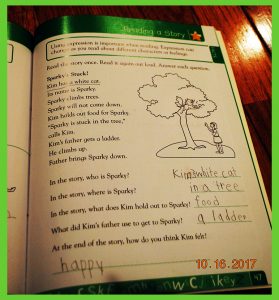 Reading a Story
Using expression is important when reading. Expression can
change as you read about different characters or feelings.
Read the story once. Read it again out loud. Answer each question.
Sparky's Stuck!
Kim has a white cat.
Its name is Sparky.
Sparky climbs trees.
Sparky will not come down.
Kim holds out food for Sparky.
"Sparky is stuck in the tree,"
calls Kim.
Kim's father gets a ladder.
He climbs up.
Father brings Sparky down.
In the story, who is Sparky? Kim's white cat
In the story, where is Sparky? in a tree
In the story, what does Kim hold out to Sparky? food
What did Kim's father use to get to Sparky? a ladder
At the end of the story, how do you think Kim felt?
happy
10.16.2017